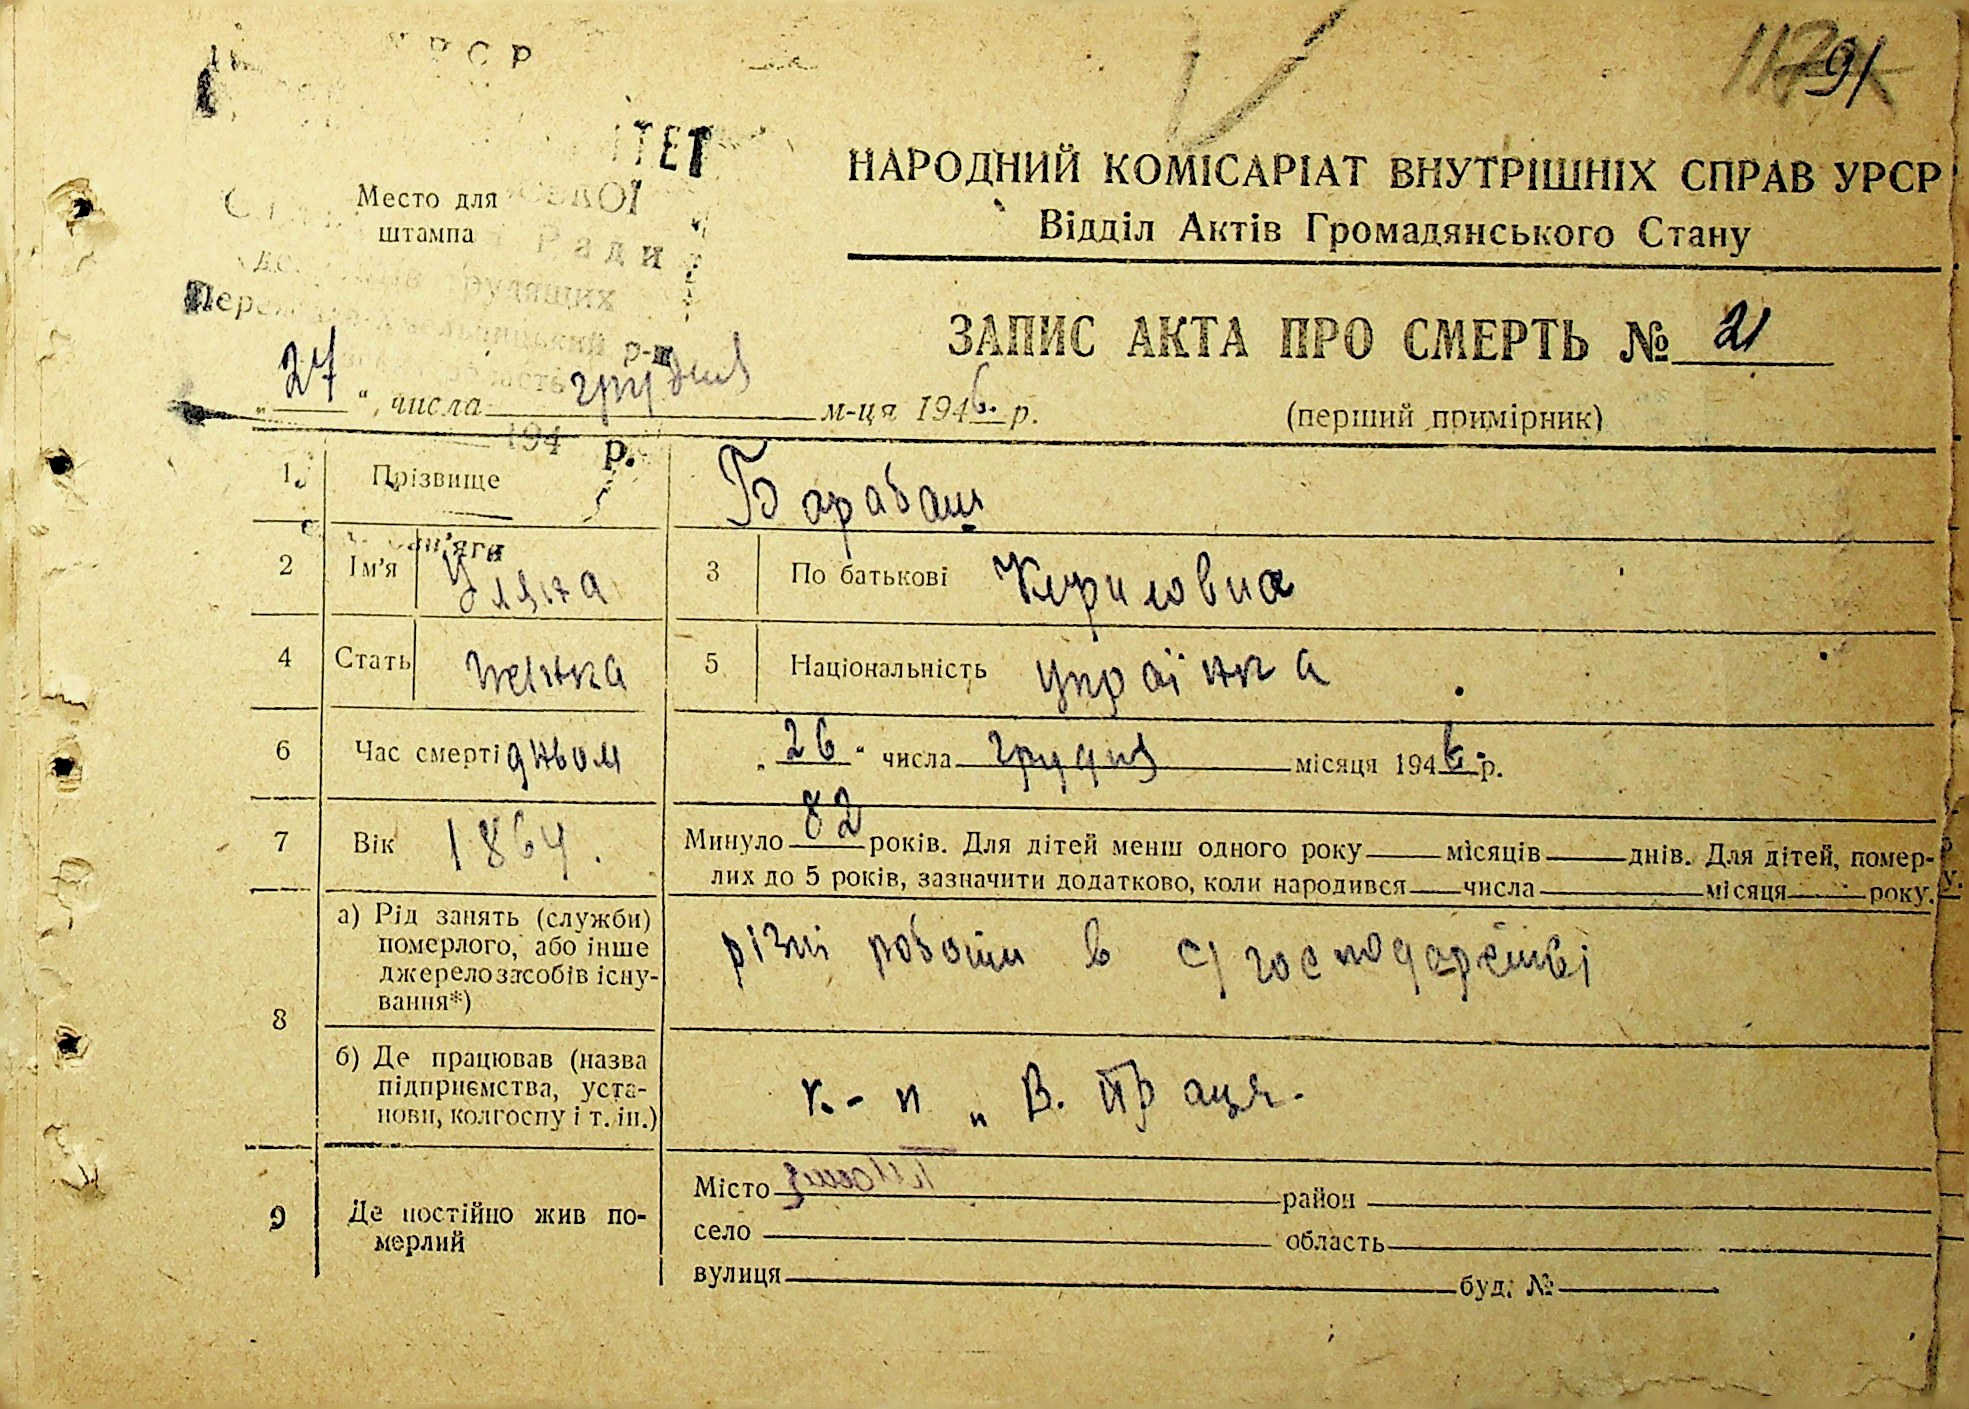 УРСР
91
ІТЕТ
НАРОДНИЙ КОМІСАРІАТ ВНУТРІШНІХ СПРАВ УРСР
Место для
штампа
Ради
Відділ Актів Громадянського Стану
трудящих
ЗАПИС АКТА ПРО СМЕРТЬ № 21
р-н
„27“ числа грудня м-ця 1946. р.
(перший примірник)
194 р.
1. Прізвище Барабаш
2 Ім'я Уляна 3 По батькові Кириловна
4 Стать жінка 5 Національність українка
6 Час смерті дньом „26“ числа грудня місяця 1946. р.
7 Вік 1864. Минуло 82 років. Для дітей менш одного року місяців днів. Для дітей, помер-
лих до 5 років, зазначити додатково, коли народився числа місяця року.
8 а) Рід занять (служби)
померлого, або інше
джерело засобів існу-
вання*)
різні роботи в с/господарстві
б) Де працював (назва
підприємства, уста-
нови, колгоспу і т. ін.)
к-п „В. Праця.
9 Де постійно жив по-
мерлий
Місто район
село область
вулиця буд. №